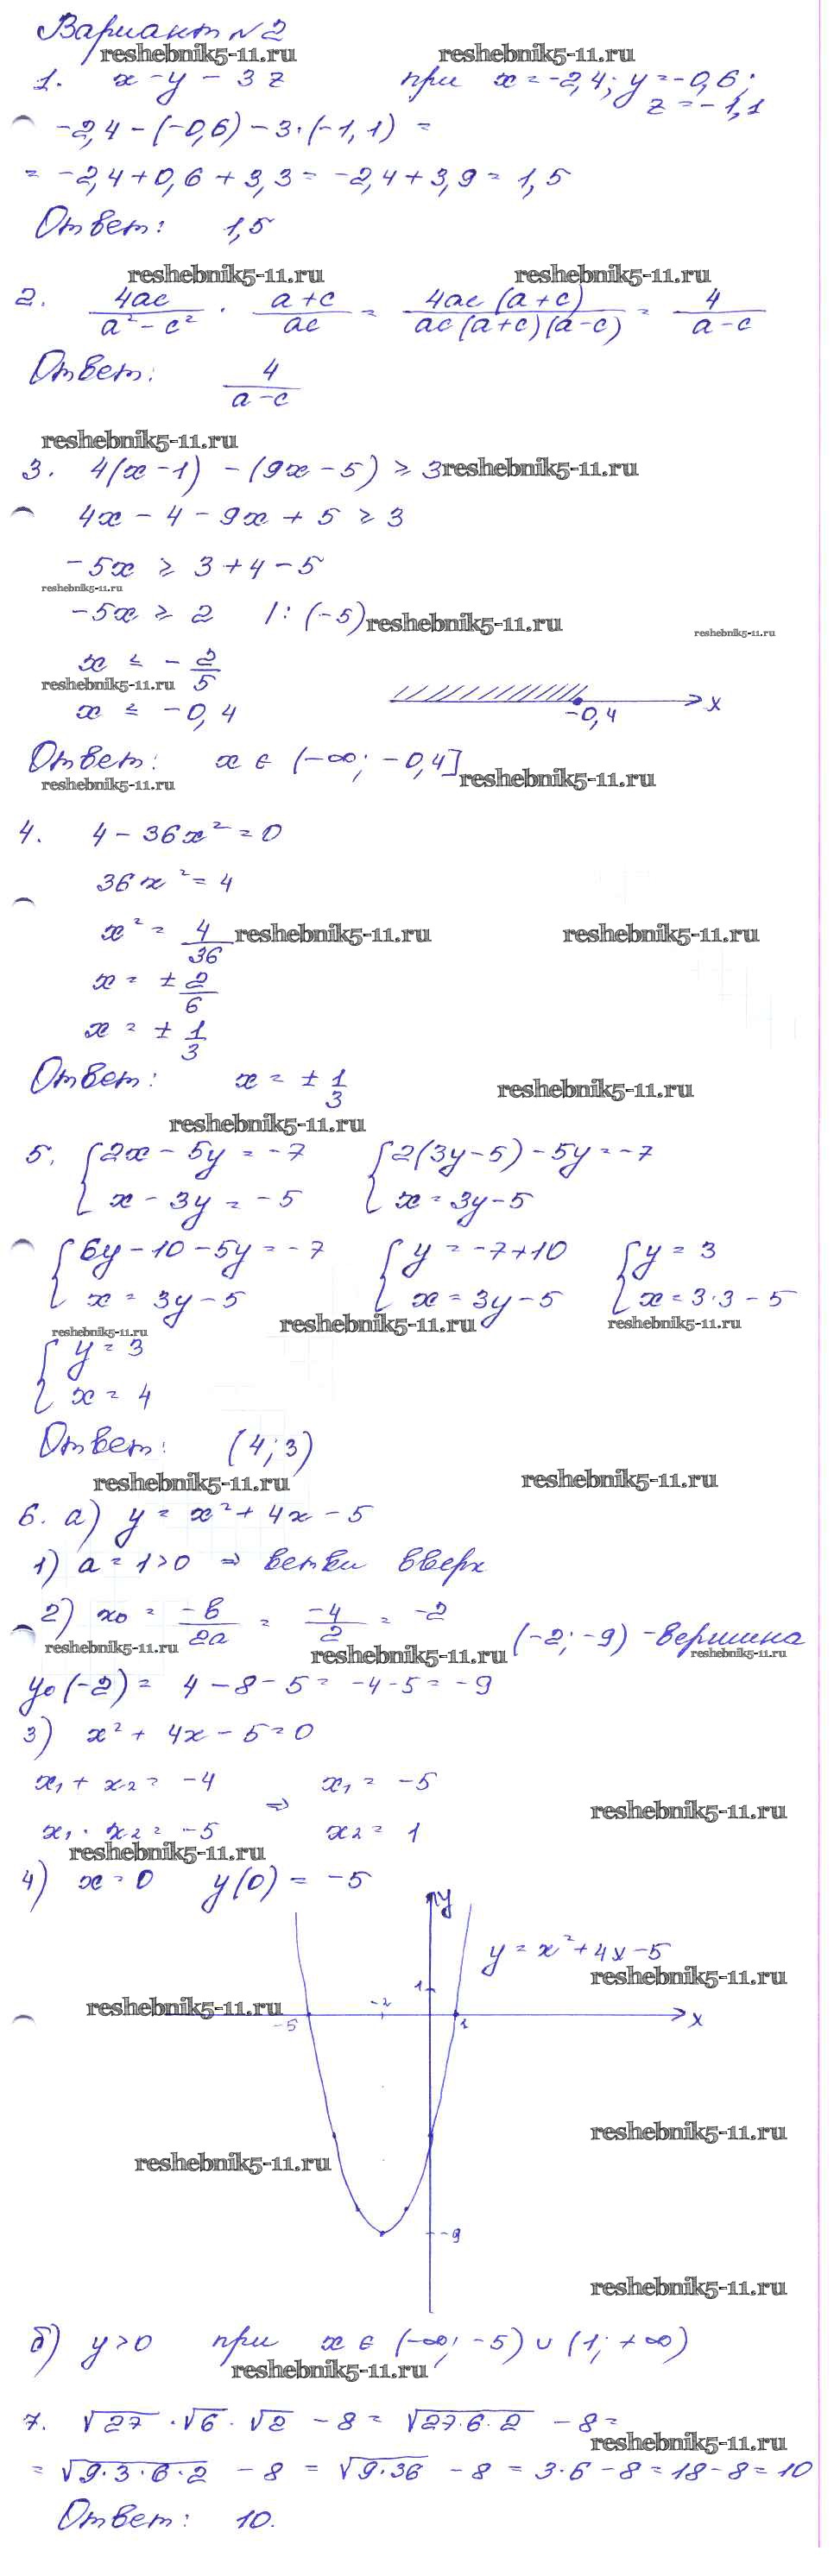 Вариант №2
reshebnik5-11.ru reshebnik5-11.ru
1. x - y - 3z при x = -2,4; y = -0,6;
z = -1,1
-2,4 - (-0,6) - 3·(-1,1) =
= -2,4 + 0,6 + 3,3 = -2,4 + 3,9 = 1,5
Ответ: 1,5
reshebnik5-11.ru reshebnik5-11.ru
2. 4ac/(a² - c²) · (a+c)/ac = 4ac(a+c)/(ac(a+c)(a-c)) = 4/(a-c)
Ответ: 4/(a-c)
reshebnik5-11.ru
3. 4(x-1) - (9x-5) ≥ 3 reshebnik5-11.ru
4x - 4 - 9x + 5 ≥ 3
-5x ≥ 3 + 4 - 5
reshebnik5-11.ru
-5x ≥ 2 |: (-5) reshebnik5-11.ru reshebnik5-11.ru
x ≤ - 2/5
reshebnik5-11.ru
x ≤ -0,4 -0,4 x
Ответ: x ∈ (-∞; -0,4]
reshebnik5-11.ru reshebnik5-11.ru
4. 4 - 36x² = 0
36x² = 4
x² = 4/36 reshebnik5-11.ru reshebnik5-11.ru
x = ± 2/6
x = ± 1/3
Ответ: x = ± 1/3 reshebnik5-11.ru
reshebnik5-11.ru
5. { 2x - 5y = -7 { 2(3y-5) - 5y = -7
x - 3y = -5 x = 3y-5
{ 6y - 10 - 5y = -7 { y = -7+10 { y = 3
x = 3y - 5 x = 3y - 5 x = 3·3 - 5
reshebnik5-11.ru reshebnik5-11.ru reshebnik5-11.ru
{ y = 3
x = 4
Ответ: (4; 3)
reshebnik5-11.ru reshebnik5-11.ru
6. а) y = x² + 4x - 5
1) a = 1 > 0 ⇒ ветви вверх
2) x₀ = -b/2a = -4/2 = -2 (-2; -9) - вершина
reshebnik5-11.ru reshebnik5-11.ru reshebnik5-11.ru
y₀(-2) = 4 - 8 - 5 = -4 - 5 = -9
3) x² + 4x - 5 = 0
x₁ + x₂ = -4 ⇒ x₁ = -5
x₁ · x₂ = -5 x₂ = 1 reshebnik5-11.ru
reshebnik5-11.ru
4) x = 0 y(0) = -5
y
y = x² + 4x - 5
reshebnik5-11.ru
1
reshebnik5-11.ru -2
-5 1 x
reshebnik5-11.ru
reshebnik5-11.ru
-9
reshebnik5-11.ru
б) y > 0 при x ∈ (-∞; -5) ∪ (1; +∞)
reshebnik5-11.ru
7. √27 · √6 · √2 - 8 = √27·6·2 - 8 =
reshebnik5-11.ru
= √9·3·6·2 - 8 = √9·36 - 8 = 3·6 - 8 = 18 - 8 = 10
Ответ: 10.